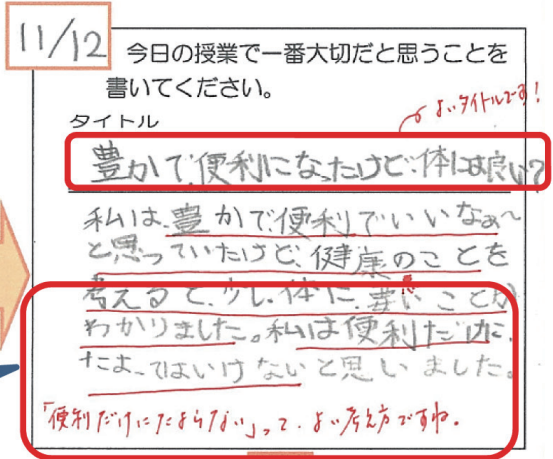 11/12
今日の授業で一番大切だと思うことを
書いてください。
よいタイトルです!
タイトル
豊かで便利になったけど、体には良い?
私は、豊かで便利でいいなぁ〜
と思っていたけど、健康のことを
考えると、少し、体に、悪いことが
わかりました。私は便利だけに、
たよってはいけないと思いました。
「便利だけにたよらない」って、よい考え方ですね。